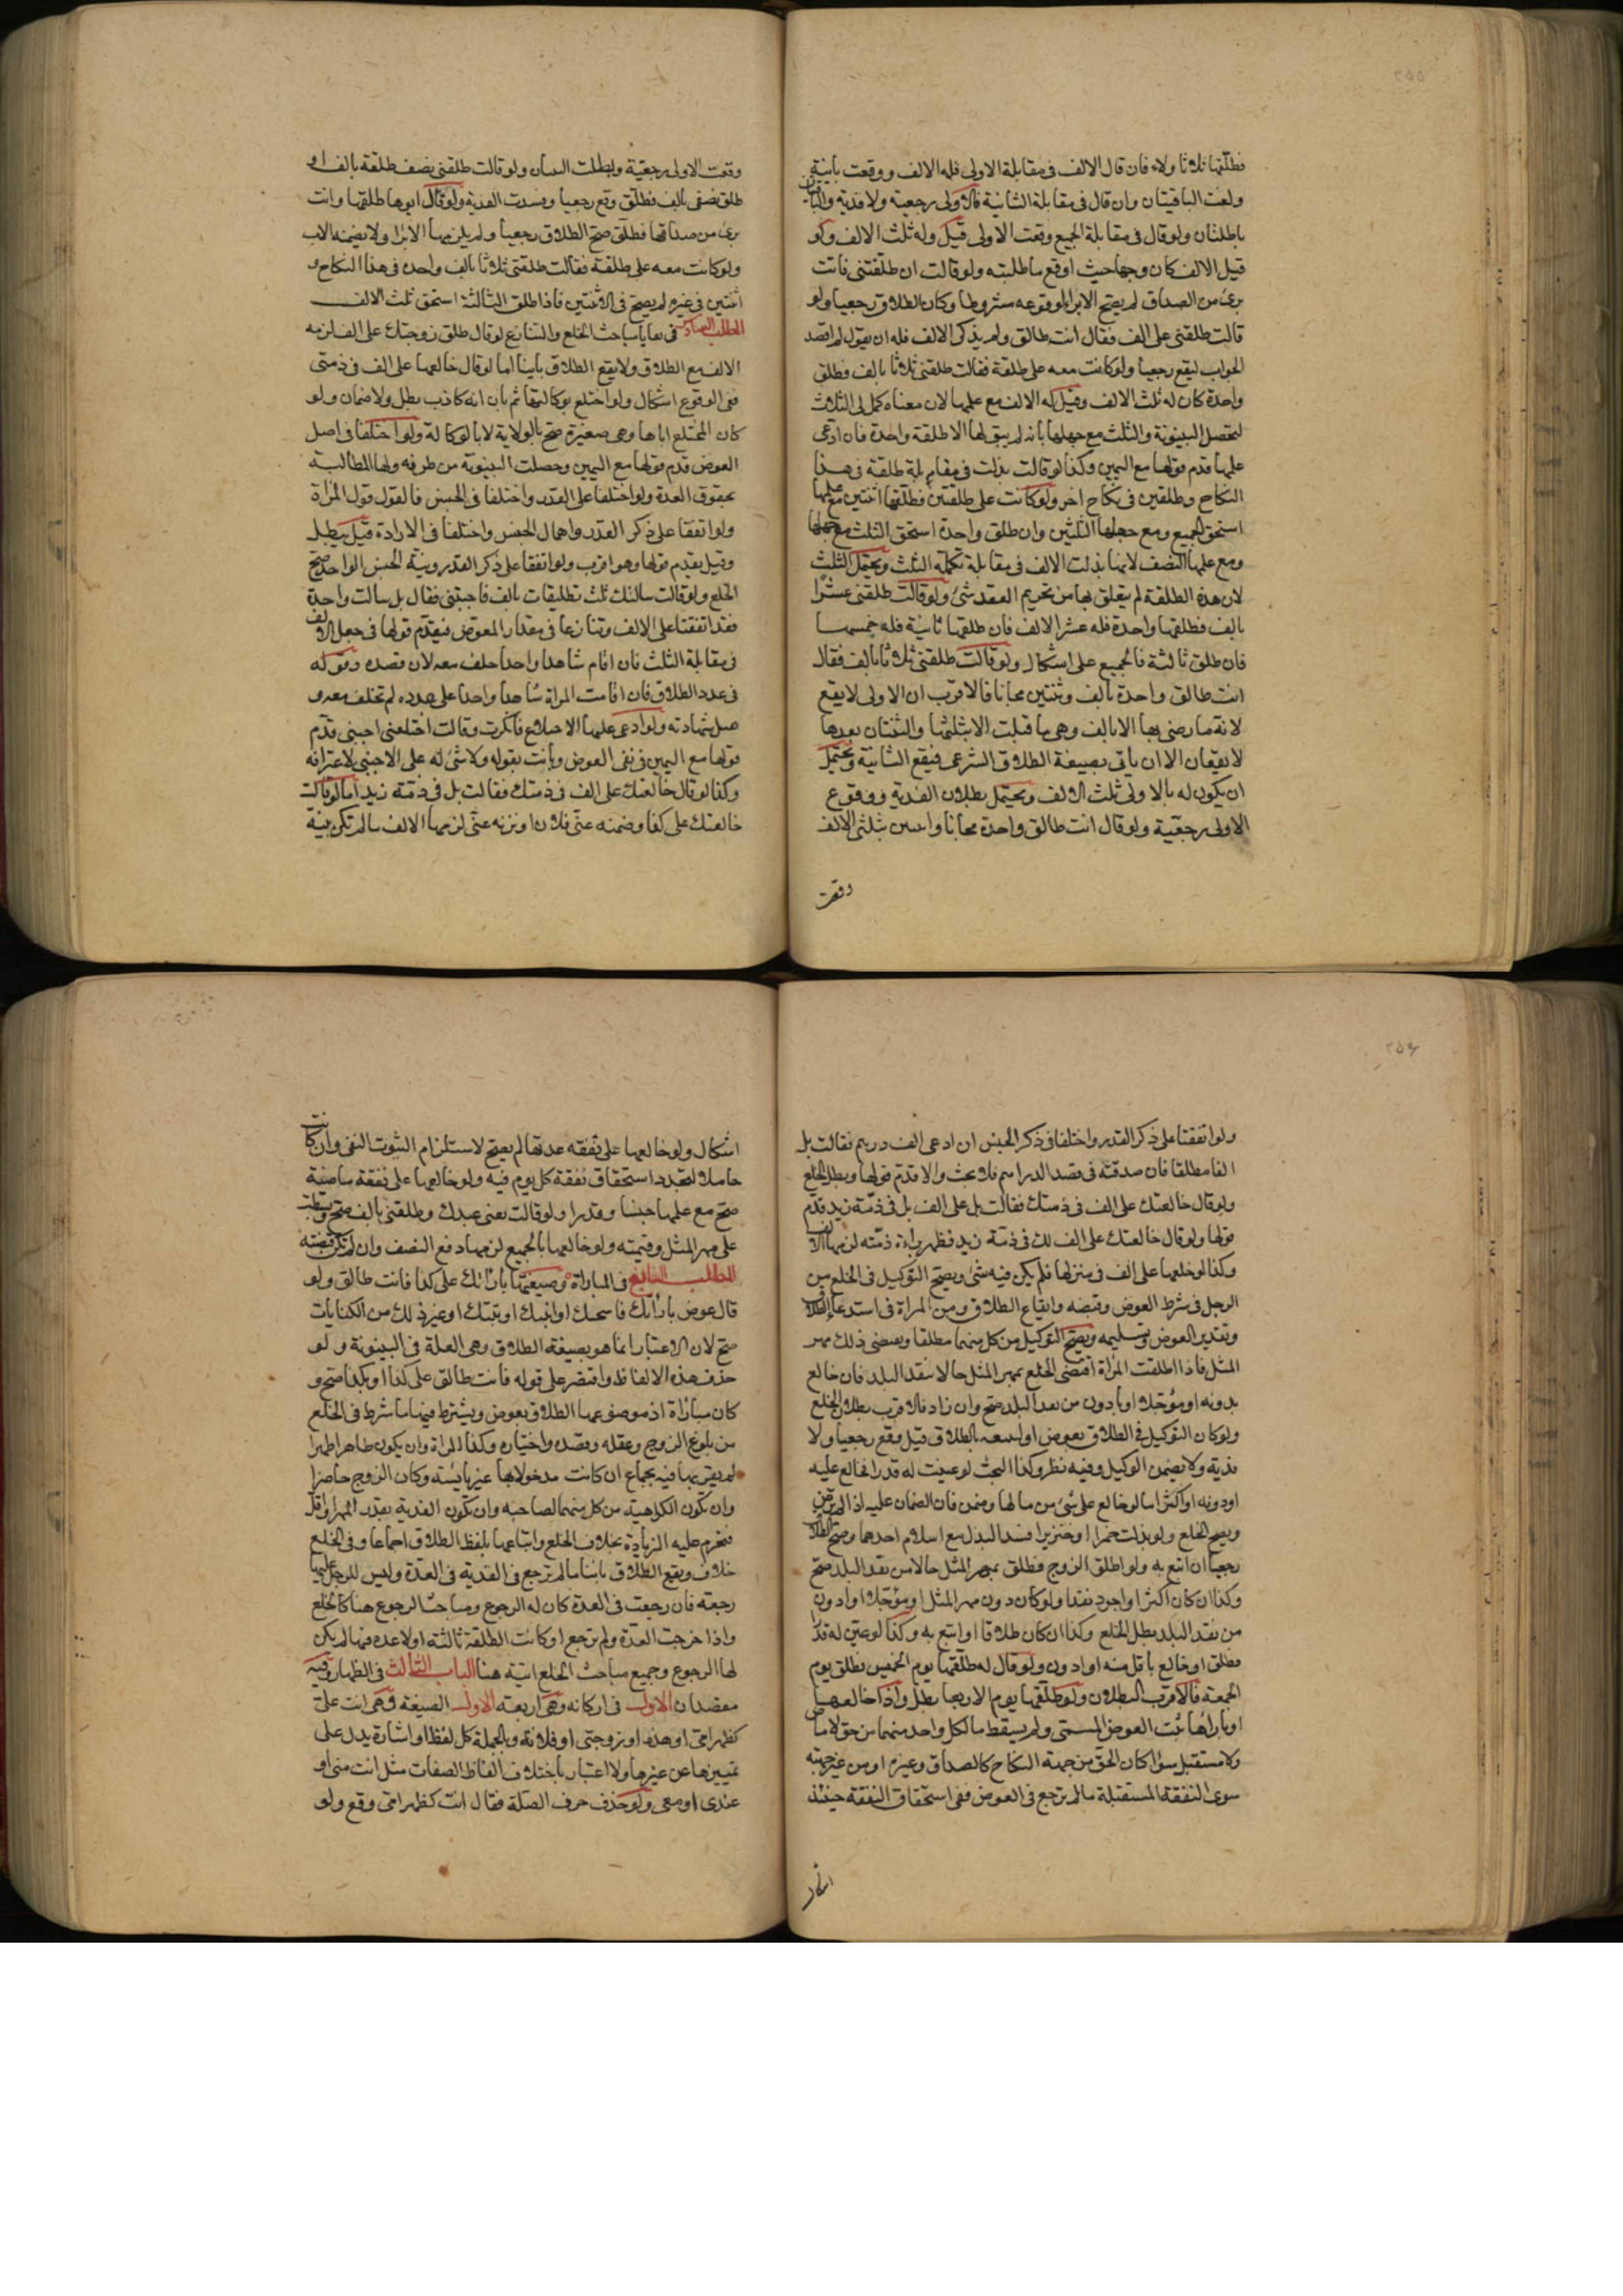 ٢٥٥
فطلقها ثلاثا ولاء فان قال الالف فى مقابلة الاولى فله الالف ووقعت بائنة
ولغت الباقيتان وان قال فى مقابلة الثانية فالاولى رجعية ولا فدية والباقيتان
باطلتان ولو قال فى مقابلة الجميع وقعت الاولى قيل وله ثلث الالف ولو
قيل الالف كان وجها حيث اوقع ما طلبته ولو قالت ان طلقتنى فانت
برئ من الصداق لم يصح الابراء لوقوعه مشروطا وكان الطلاق رجعيا ولو
قالت طلقنى على الف فقال انت طالق ولم يذكر الالف فله ان يقول لم اقصد
الجواب ليقع رجعيا ولو كانت معه على طلقة فقالت طلقنى ثلاثا بالف فطلق
واحدة كان له ثلث الالف وقيل له الالف مع علمها لان معناه كمل لى الثلاث
لتحصل البينونة والثلث مع جهلها بانه لم يبق لها الا طلقة واحدة فان ادعى
علمها قدم قولها مع اليمين وكذا لو قالت بذلت فى مقابلة طلقة فى هذا
النكاح وطلقتين فى نكاح اخر ولو كانت على طلقتين فطلقها اثنتين مع علمها
استحق الجميع ومع جهلها الثلثين وان طلق واحدة استحق الثلث مع جهلها
ومع علمها النصف لانها بذلت الالف فى مقابلة تكملة الثلث ويحتمل الثلث
لان هذه الطلقة لم يتعلق بها من تحريم العقد شئ ولو قالت طلقنى عشرا
بالف فطلقها واحدة فله عشر الالف فان طلقها ثانية فله خمسها
فان طلق ثالثة فالجميع على اشكال ولو قالت طلقنى ثلاثا بالف فقال
انت طالق واحدة بالف وثنتين مجانا فالاقرب ان الاولى لا يقع
لانه ما رضى بها الا بالف وهى ما قبلت الا بثلثها والثنتان بعدها
لا يقعان الا ان يأتى بصيغة الطلاق الشرعى فيقع الثانية ويحتمل
ان يكون له بالاولى ثلث الالف ويحتمل بطلان الفدية ووقوع
الاولى رجعية ولو قال انت طالق واحدة مجانا واثنتين بثلثى الالف
وقعت
وقعت الاولى رجعية وبطلت الثنتان ولو قالت طلقنى نصف طلقة بالف او
طلق نصفى بالف فطلق وقع رجعيا وفسدت الفدية ولو قال ابوها طلقها وانت
برئ من صداقها فطلق صح الطلاق رجعيا ولم يلزمها الابراء ولا يضمنه الاب
ولو كانت معه على طلقة فقالت طلقنى ثلاثا بالف واحدة فى هذا النكاح و
اثنتين فى غيره لم يصح فى الاثنتين فاذا طلق الثالثة استحق ثلث الالف
المطلب السادس فى بقايا مباحث الخلع والتنازع لو قال طلق زوجتك على الف لزمه
الالف مع الطلاق ولا يقع الطلاق بائنا اما لو قال خالعها على الف فى ذمتى
ففى الوقوع اشكال ولو اختلع بوكالتها ثم بان انه كاذب بطل ولا ضمان ولو
كان المختلع اباها وهى صغيرة صح بالولاية لا بالوكالة ولو اختلفا فى اصل
العوض قدم قولها مع اليمين وحصلت البينونة من طرفه ولها المطالبة
بحقوق العدة ولو اختلفا على القدر واختلفا فى الجنس فالقول قول المراة
ولو اتفقا على ذكر القدر واهمال الجنس واختلفا فى الارادة قيل يبطل
وقيل يقدم قولها وهو اقرب ولو اتفقا على ذكر القدر ونية الجنس الواحد صح
الخلع ولو قالت سالتك ثلث تطليقات بالف فاجبتنى فقال بل سالت واحدة
فقد اتفقا على الالف وتنازعا فى مقدار المعوض فيقدم قولها فى جعل الالف
فى مقابلة الثلث فان اقام شاهدا واحدا حلف معه لان قصده وقوله
فى عدد الطلاق فان اقامت المراة شاهدا واحدا على عدده لم تحلف معه و
قبل شهادته ولو ادعى عليها الاختلاع فانكرت وقالت اختلعنى اجنبى قدم
قولها مع اليمين فى نفى العوض وبانت بقوله ولا شئ له على الاجنبى لاعترافه
وكذا لو قال خالعتك على الف فى ذمتك فقالت بل فى ذمة زيد اما لو قالت
خالعتك على كذا وضمنه عنى فلان او يزنه عنى لزمها الالف ما لم تكن بينة
٢٥٦
ولو اتفقتا على ذكر القدر واختلفا فى ذكر الجنس ان ادعى الف درهم فقالت بل
الفا مطلقا فان صدقته فى قصد الدراهم فلا بحث والا قدم قولها وبطل الخلع
ولو قال خالعتك على الف فى ذمتك فقالت بل على الف بل فى ذمة زيد قدم
قولها ولو قال خالعتك على الف لك فى ذمة زيد فظهر براءة ذمته لزمها الالف
وكذا لو خلعها على الف فى منزلها فلم يكن فيه شئ ويصح التوكيل فى الخلع من
الرجل فى شرط العوض وقبضه وايقاع الطلاق ومن المراة فى استدعاء الطلاق
وتقدير العوض وتسليمه ويصح التوكيل من كل منهما مطلقا ويقتضى ذلك مهر
المثل فاذا اطلقت المراة اقتضى الخلع بمهر المثل حالا بنقد البلد فان خالع
بدونه او مؤجلا او بادون من نقد البلد صح وان زاد فالاقرب بطلان الخلع
ولو كان التوكيل فى الطلاق بعوض او اتبعه بالطلاق قيل وقع رجعيا ولا
فدية ولا يضمن الوكيل وفيه نظر وكذا البحث لو عينت له قدرا فخالع عليه
او دونه او اكثر اما لو خالع على شئ من مالها وضمن فان الضمان عليه اذا لم ترض
ويصح الخلع ولو بذلت خمرا او خنزيرا فسد البذل مع اسلام احدهما وصح الطلاق
رجعيا ان اتبع به ولو اطلق الزوج فطلق بمهر المثل حالا من نقد البلد صح
وكذا ان كان اكثر او اجود نقدا ولو كان دون مهر المثل او مؤجلا او ادون
من نقد البلد بطل الخلع وكذا ان كان طلاقا او اتبع به وكذا لو عين له قدرا
فطلق او خالع باقل منه او ادون ولو قال له طلقها يوم الخميس فطلق يوم
الجمعة فالاقرب البطلان ولو طلقها يوم الاربعا بطل واذا خالعها
او بارأها ثبت العوض المسمى ولم يسقط ما لكل واحد منهما من حق لا ماض
ولا مستقبل سواء كان الحق من جهة النكاح كالصداق وغيره او من غير جهته
سوى النفقة المستقبلة ما لم ترجع فى العوض ففى استحقاق النفقة حينئذ
اشكال
اشكال ولو خالعها على نفقة عدتها لم يصح لاستلزام الثبوت النفى وان كانت
حاملا لتجدد استحقاق نفقة كل يوم فيه ولو خالعها على نفقة ماضية
صح مع علمها جنسا وقدرا ولو قالت بعنى عبدك وطلقنى بالف صح وبسطت
على مهر المثل وقيمته ولو خالعها بالجميع لزمها دفع النصف وان لم تكن قبضته
المطلب السابع فى المباراة وصيغتها بارأتك على كذا فانت طالق ولو
قال عوض بارأتك فاسختك او ابنتك او بتتك او غير ذلك من الكنايات
صح لان الاعتبار انما هو بصيغة الطلاق وهى العلة فى البينونة ولو
حذف هذه الالفاظ واقتصر على قوله فانت طالق على كذا او بكذا صح و
كان مباراة اذ موضوعها الطلاق بعوض ويشترط فيها ما شرط فى الخلع
من بلوغ الزوج وعقله وقصده واختياره وكذا المراة وان يكون طاهرا طهرا
لم يقربها فيه بجماع ان كانت مدخولا بها غير يائسة وكان الزوج حاضرا
وان تكون الكراهية من كل منهما لصاحبه وان تكون الفدية بقدر المهر او اقل
فتحرم عليه الزيادة بخلاف الخلع واتباعها بلفظ الطلاق اجماعا وفى الخلع
خلاف ويقع الطلاق بائنا ما لم ترجع فى الفدية فى العدة وليس للرجل عليها
رجعة فان رجعت فى العدة كان له الرجوع ومباحث الرجوع هنا كالخلع
واذا خرجت العدة ولم ترجع او كانت الطلقة ثالثة او لا عدة فيها لم يكن
لها الرجوع وجميع مباحث الخلع اتية هنا الباب الثالث فى الظهار وفيه
مقصدان الاول فى اركانه وهى اربعة الاول الصيغة وهى انت على
كظهر امى او هذه او زوجتى او فلانة وبالجملة كل لفظ او اشارة يدل على
تمييزها عن غيرها ولا اعتبار باختلاف الفاظ الصفات مثل انت منى او
عندى او معى ولو حذف حرف الصلة فقال انت كظهر امى وقع ولو